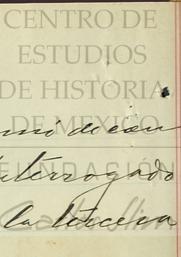 CENTRO DE
ESTUDIOS
DE HISTORIA
DE MEXICO
FUNDACIÓN
interrogado
la tercera